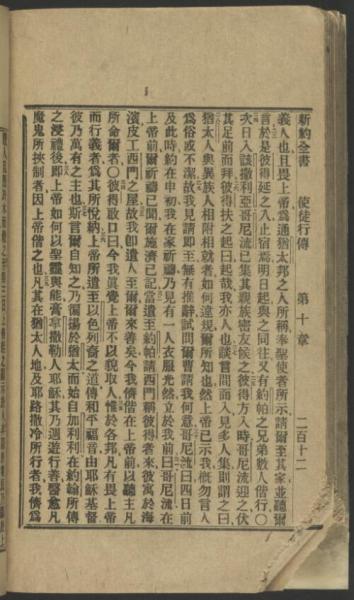 新約全書 使徒行傳 第十章 二百十二
義人也且畏上帝爲通猶太邦之人所稱奉聖使者所示請爾至其家並聽爾
言於是彼得延之入止宿焉明日起與之同往又有約帕之兄弟數人偕行〇
次日入該撒利亞哥尼流已集其親族密友候之彼得方入時哥尼流迎之伏
其足前而拜彼得扶之起曰起哉我亦人也談言間而入見多人集則謂之曰
猶太人與異族人相附相就者如何違規爾所知也然上帝已示我槪勿言人
爲俗或不潔故我見請即至無有推辭試問爾曹請我何意哥尼流曰四日前
及此時約在申初我在家祈禱乃見有一人衣服光然立於我前曰哥尼流在
上帝前爾祈禱已聞爾施濟已記當遣至約帕請西門稱彼得者來彼寓於海
濱皮工西門之屋故我卽遣人至爾爾來善矣今我儕偕在上帝前以聽主凡
所命爾者〇彼得啟口曰今我眞覺上帝不以貌取人惟於各邦凡有畏上帝
而行義者爲其所悅納上帝所遣至以色列裔之道傳和平福音由耶穌基督
彼乃萬有之主也斯言爾自知之乃徧揚於猶太而始自加利利在約翰所傳
之浸禮後卽上帝如何以聖靈與能膏拿撒勒人耶穌其乃週遊行善醫愈凡
魔鬼所挾制者因上帝偕之也凡其在猶太人地及耶路撒冷所行者我儕爲